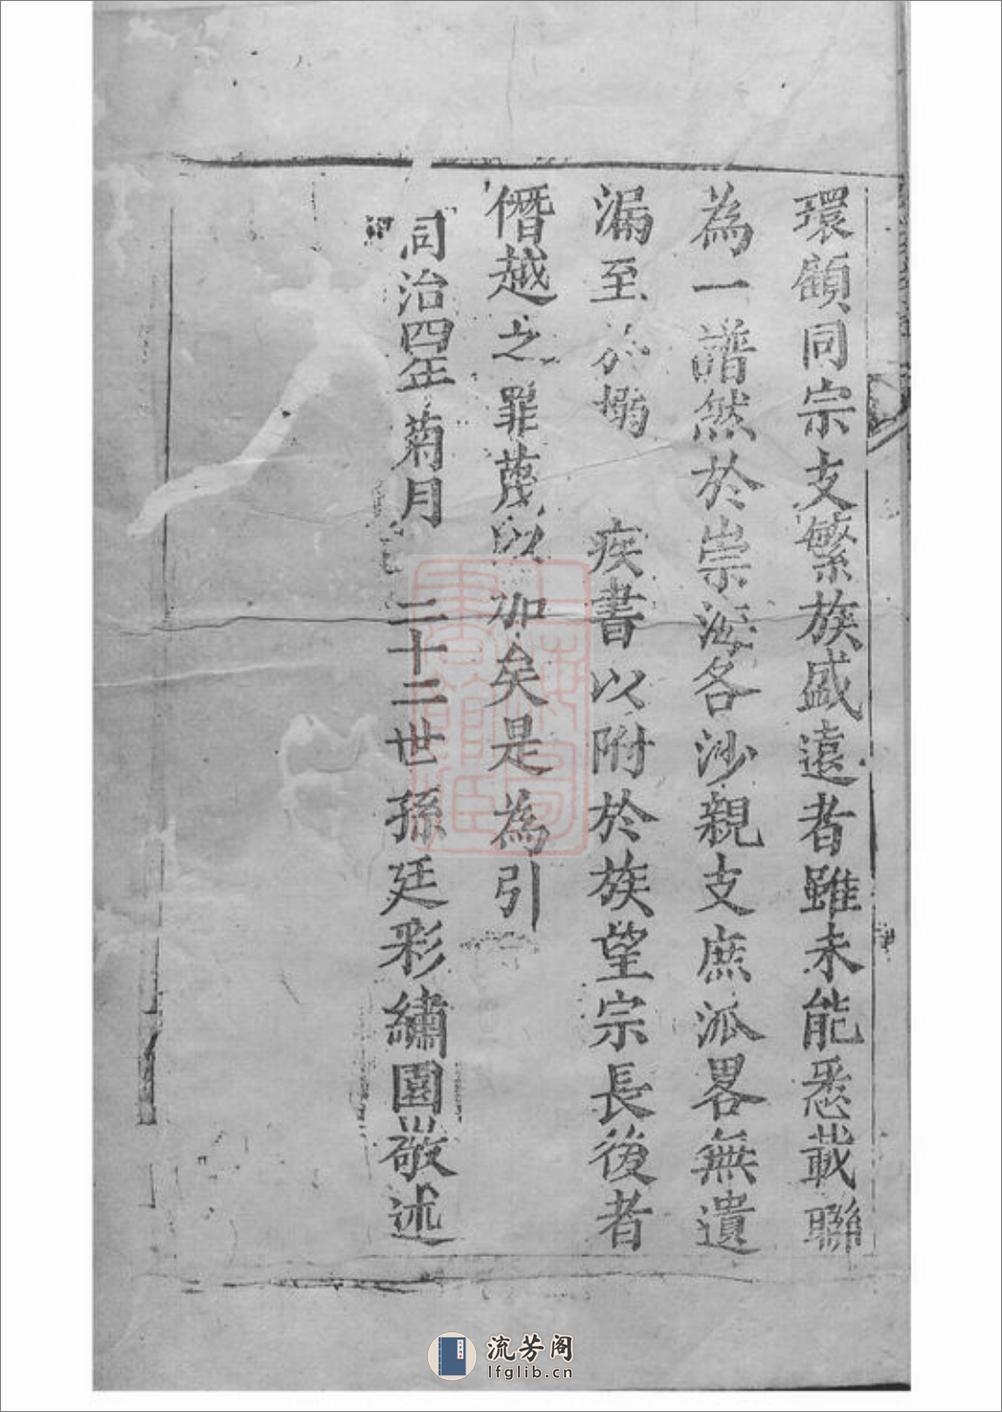 環顧同宗支繁族盛遠者雖未能悉載聯
為一譜然於崇海各沙親支庶派畧無遺
漏至於搦 疾書以附於族望宗長後者
僭越之罪蔑以加矣是為引
同治四年菊月 二十二世孫廷彩繡園敬述
流芳阁
lfglib.cn